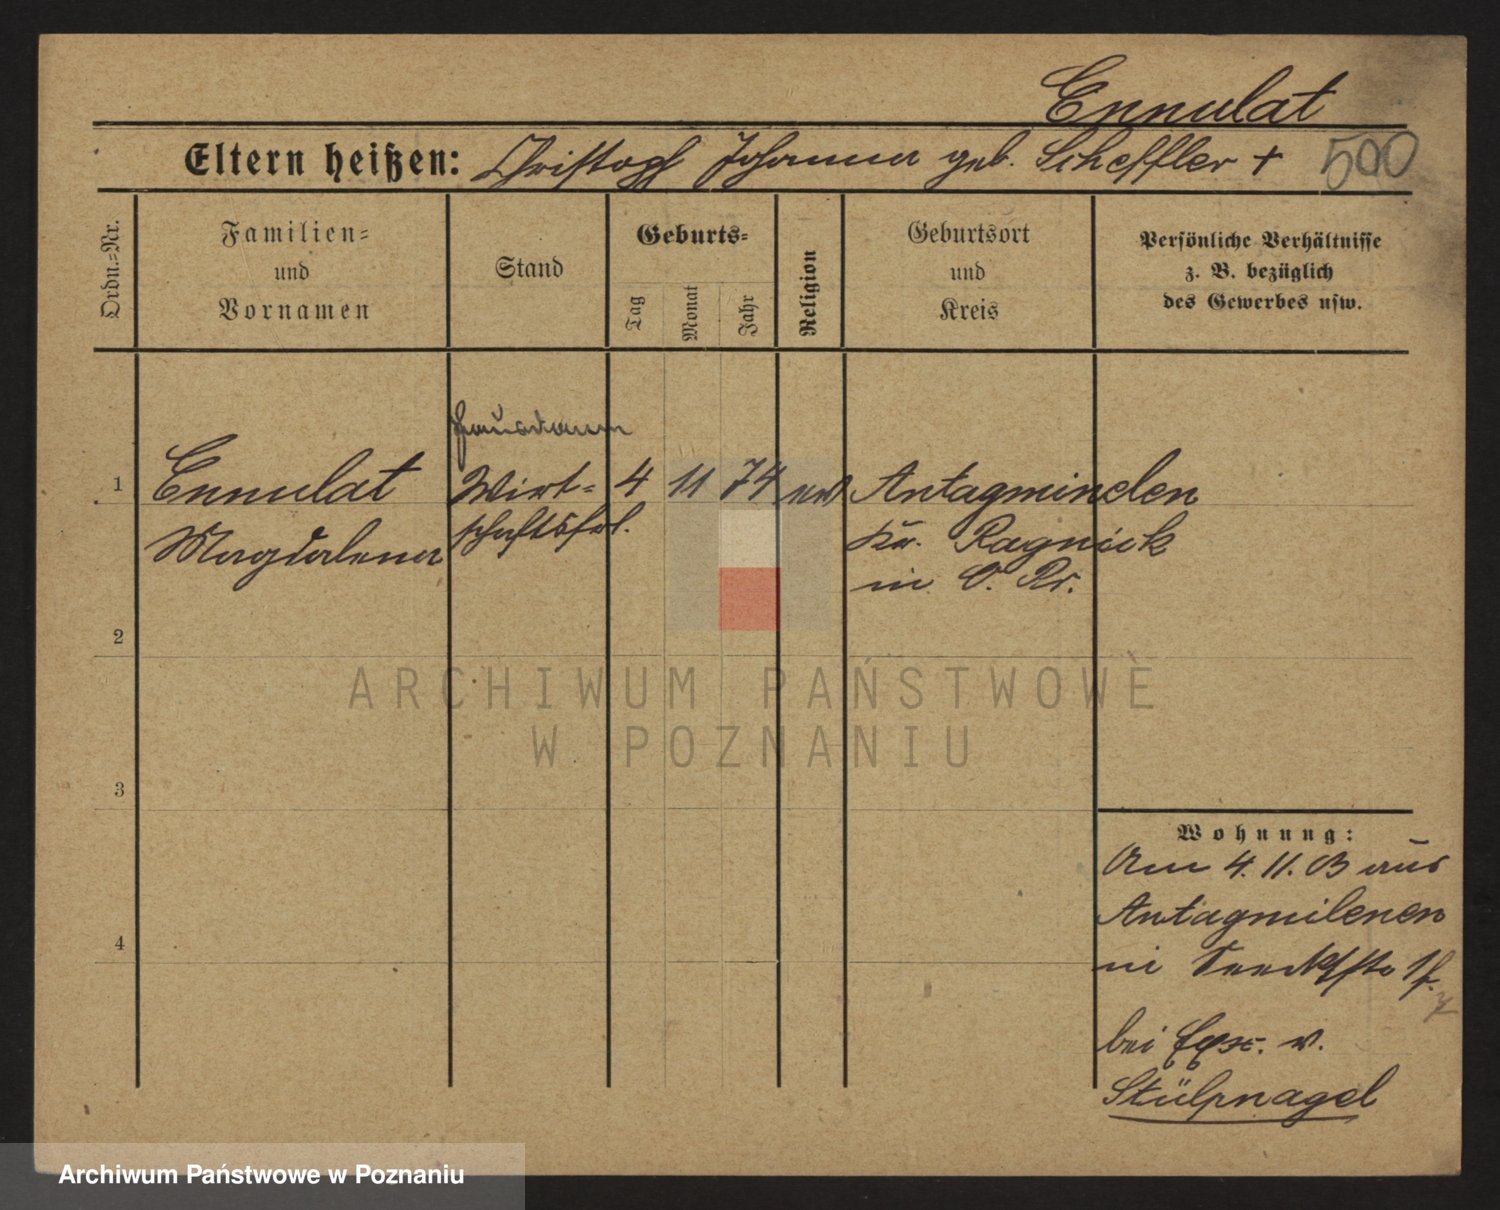 Ennulat
Eltern heißen: Christoph Johanna geb. Scheffler +
500
Ordn.=Nr.
Familien=
und
Vornamen
Stand
Geburts=
Tag
Monat
Jahr
Religion
Geburtsort
und
Kreis
Persönliche Verhältnisse
z. B. bezüglich
des Gewerbes usw.
1
Ennulat
Magdalena
Hausdame
Wirt=
schaftsfrl.
4
11
74
ev
Antagminden
Kr. Ragnick
in O. Pr.
2
3
4
Wohnung:
Am 4. 11. 03 aus
Antagmilenen
in
bei Exz. v.
Stülpnagel
ARCHIWUM PAŃSTWOWE
W POZNANIU
Archiwum Państwowe w Poznaniu